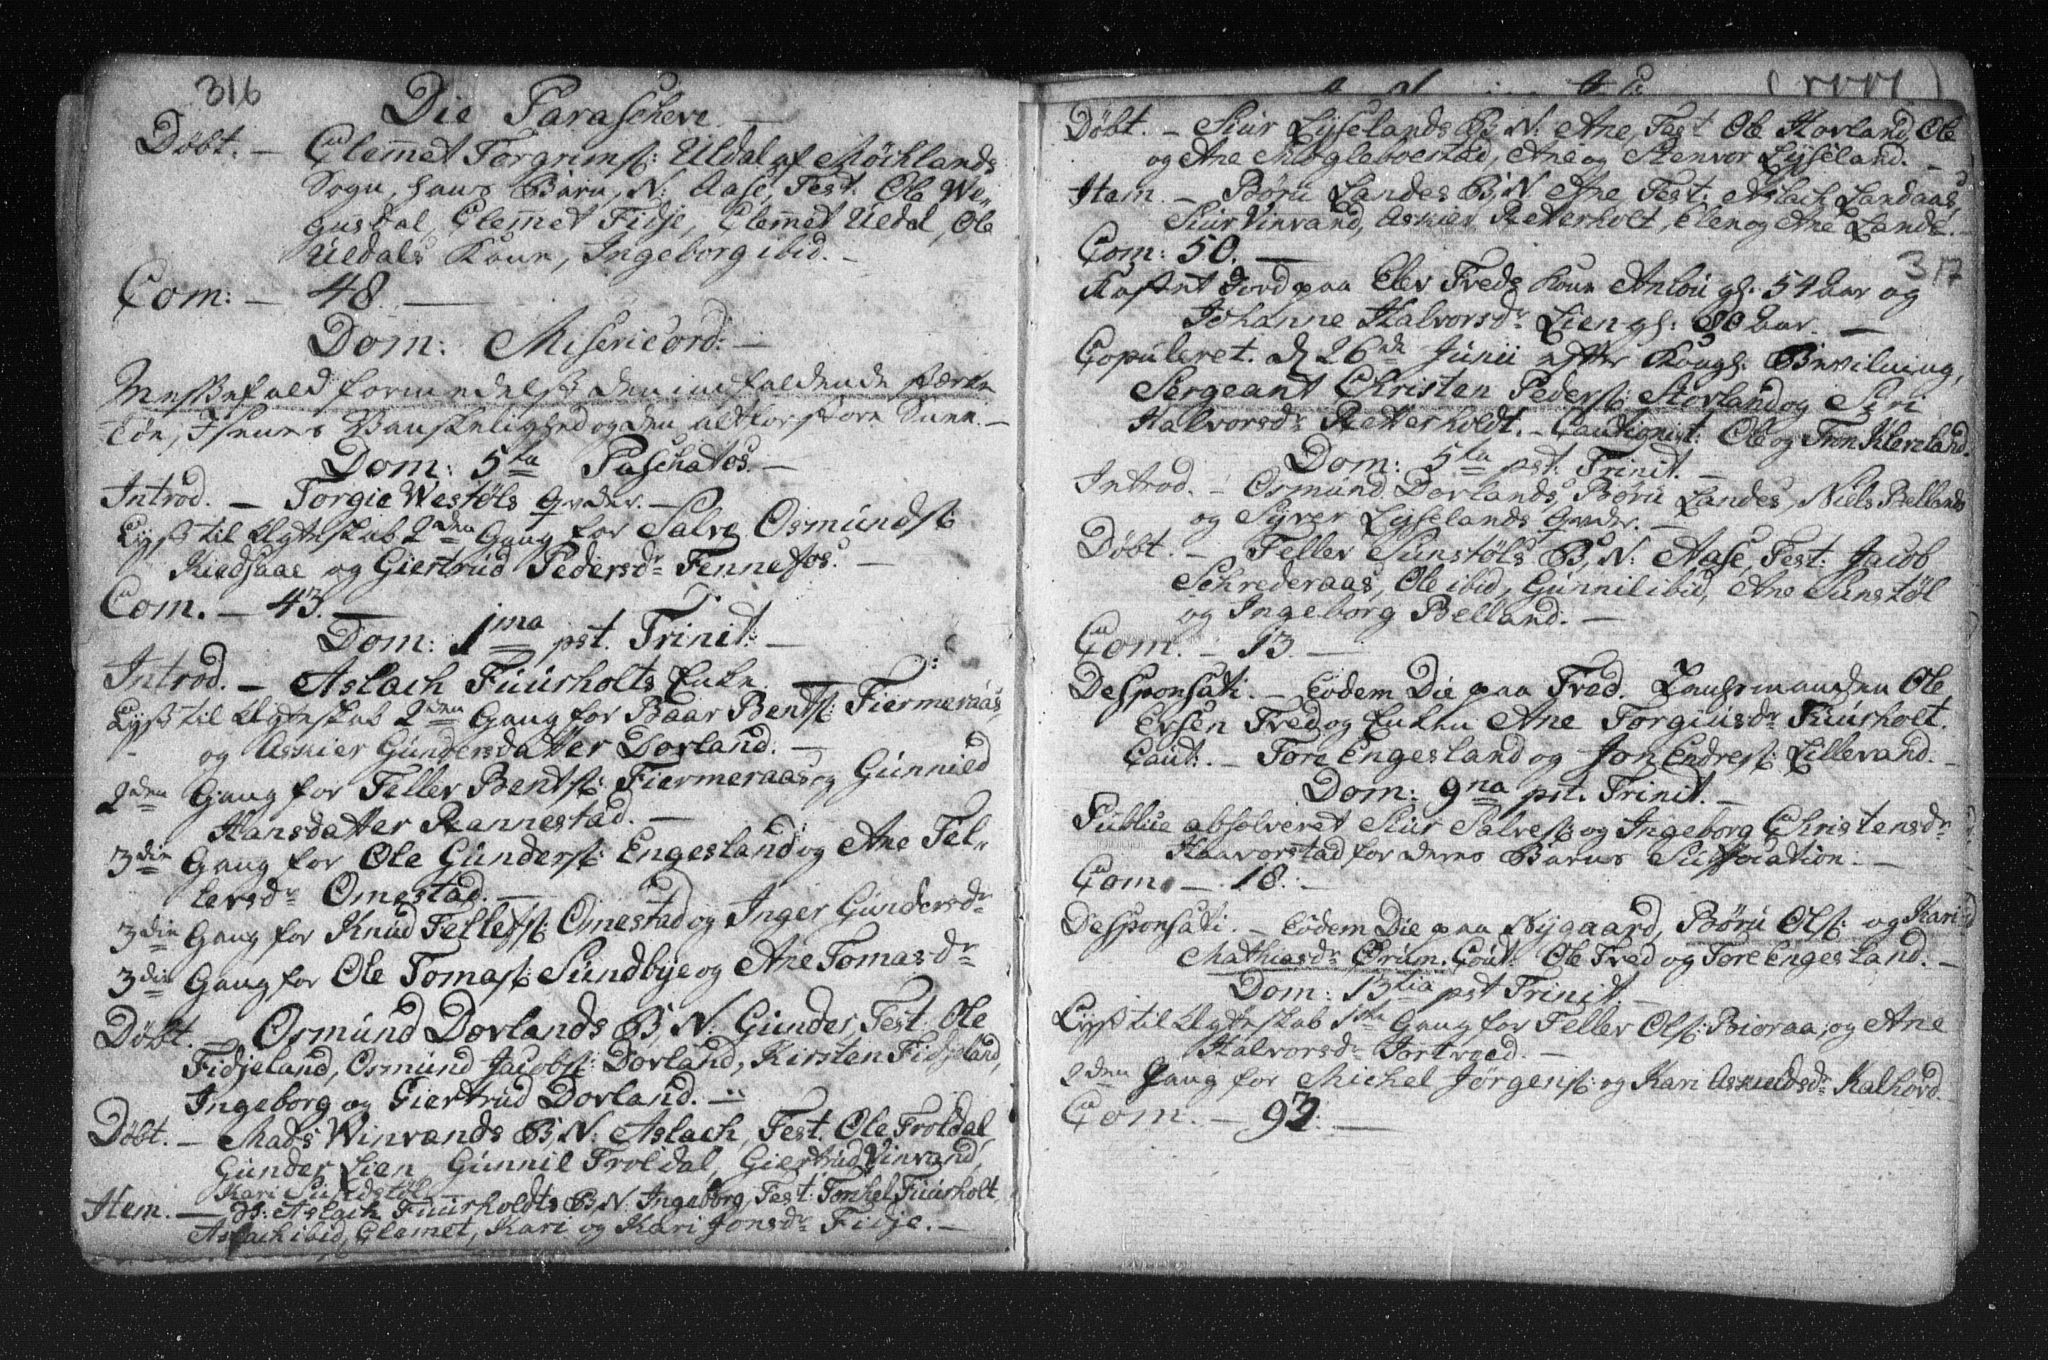 316
Die Parascheve. —
Døbt. — Clemmet Torgrims: Uldal af Møchlands
Sogn, hans Barn, N: Aase, Test: Ole We-
gusdal, Clemmet Fidje, Clemmet Uldal, Ole
Uldals Kone, Ingeborg ibid. —
Com: — 48. —
Dom: Misericord: —
Messefald formedelst den indfaldende stærke
Tøe, Isenes Vanskelighed og den altforstore Snee. —
Dom: 5ta Paschatos. —
Introd. — Torgie Westøls Qvder. —
Lyst til Ægteskab 2den Gang for Salve Osmunds:
Kiedsaae og Giertrud Pedersdr Fennefos. —
Com. — 43. —
Dom: 1ma pst. Trinit: —
Introd. — Aslach Fuursholts Enke. —
Lyst til Ægteskab 2den Gang for Baar Bents: Fiermeraas
og Asnier Gundersdatter Dovland. —
2den Gang for Teller Bents: Fiermeraas og Gunnild
Hansdatter Rannestad. —
3die Gang for Ole Gunders: Engesland og Ane Tel-
lersdr Omestad. —
3die Gang for Knud Tellefs: Omestad og Inger Gundersdr
3die Gang for Ole Tomas: Sundbye og Ane Tomasdr
Døbt. — Osmund Dovlands B, N: Gunder, Test: Ole
Fidjeland, Osmund Jacobs: Dovland, Kirsten Fidjeland,
Ingeborg og Giertrud Dovland. —
Døbt. — Mads Winvands B, N: Aslach, Test. Ole Troldal,
Gunder Lien, Gunnil Troldal, Giertrud Vinvand,
Kari
Hem. — Aslach Fuursholdts B, N: Ingeborg, Test: Tomkel Fuursholt
Aslach ibid, Clemet, Kari og Kari Jonsdr Fidje. —
Døbt. — Siur Lyselands B, N: Ane, Test Ole Hovland, Ole
og Ane Skogleboestad, Ane og Stenvor Lyseland. —
Hem. — Børu Landes B, N Ane, Test: Aslach Landaas,
Siur Vinvand, Asnier Retterholt, Elen og Ane Lande. —
Com: 50. —
317
Kastet Jord paa Elev Freds Kone Anlou gl. 54 Aar og
Johanne Halvorsdr Lien gl: 80 Aar. —
Copuleret. d 26de Junii efter Kongl: Bevilning,
Sergeant Christen Peders: Stovland og Siri
Halvorsdr Retterholdt. — Cautionist: Ole og Tron Kleveland.
Dom: 5ta pst: Trinit. —
Introd. — Osmund Dovlands, Børu Landes, Niels Bellands
og Syver Lyselands Qvder. —
Døbt. — Teller Sunstøls B, N: Aase, Test: Jacob
Schrederaas, Ole ibid, Gunnil ibid, Ane Sunstøl
og Ingeborg Belland. —
Com. — 13. —
Desponsati. — Eodem Die paa Fred. Lensmanden Ole
Evsen Fred og Enken Ane Torgiusdr Fuursholt.
Caut. — Tore Engesland og Jon Endres: Lillevand. —
Dom: 9na pst. Trinit. —
Publice absolveret Siur Salves: og Ingeborg Christensdr
Haavorstad for deres Barns Suffocation. —
Com. — 18. —
Desponsati. — Eodem Die paa Nygaard, Børu Ols: og Kari
Mathiasdr Grum. Caut: Ole Fred og Tore Engesland. —
Dom: 13tia pst Trinit. —
Lyst til Ægteskab 1ste Gang for Teller Ols: Bioraa, og Ane
Halvorsdr Tortved. —
2den Gang for Michel Jørgens: og Kari Asuldsdr Kalhovd.
Com. — 93. —